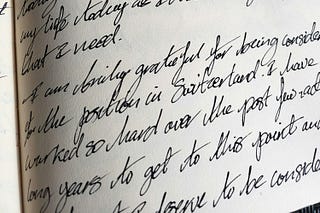 my life today as
that I need.
I am daily grateful for being conside
for the position in Switzerland. I have
worked so hard over the past few rad
long years to get to this point and
deserve to be conside